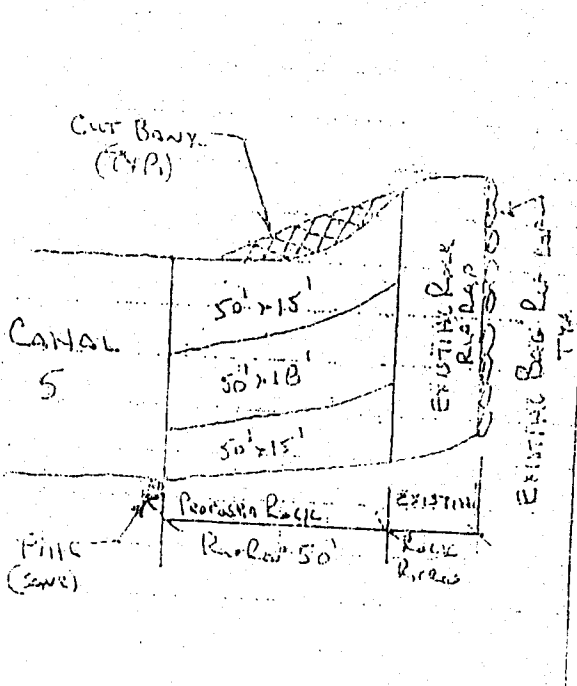 CUT BANK
(TYP.)
50' x 15'
CANAL
5
50' x 18'
50' x 15'
EXISTING ROCK
RIP RAP
EXISTING BAG RIP RAP
TYP.
PROPOSED ROCK
RIP RAP 50'
EXISTING
ROCK
RIP RAP
PINE
(SAVE)